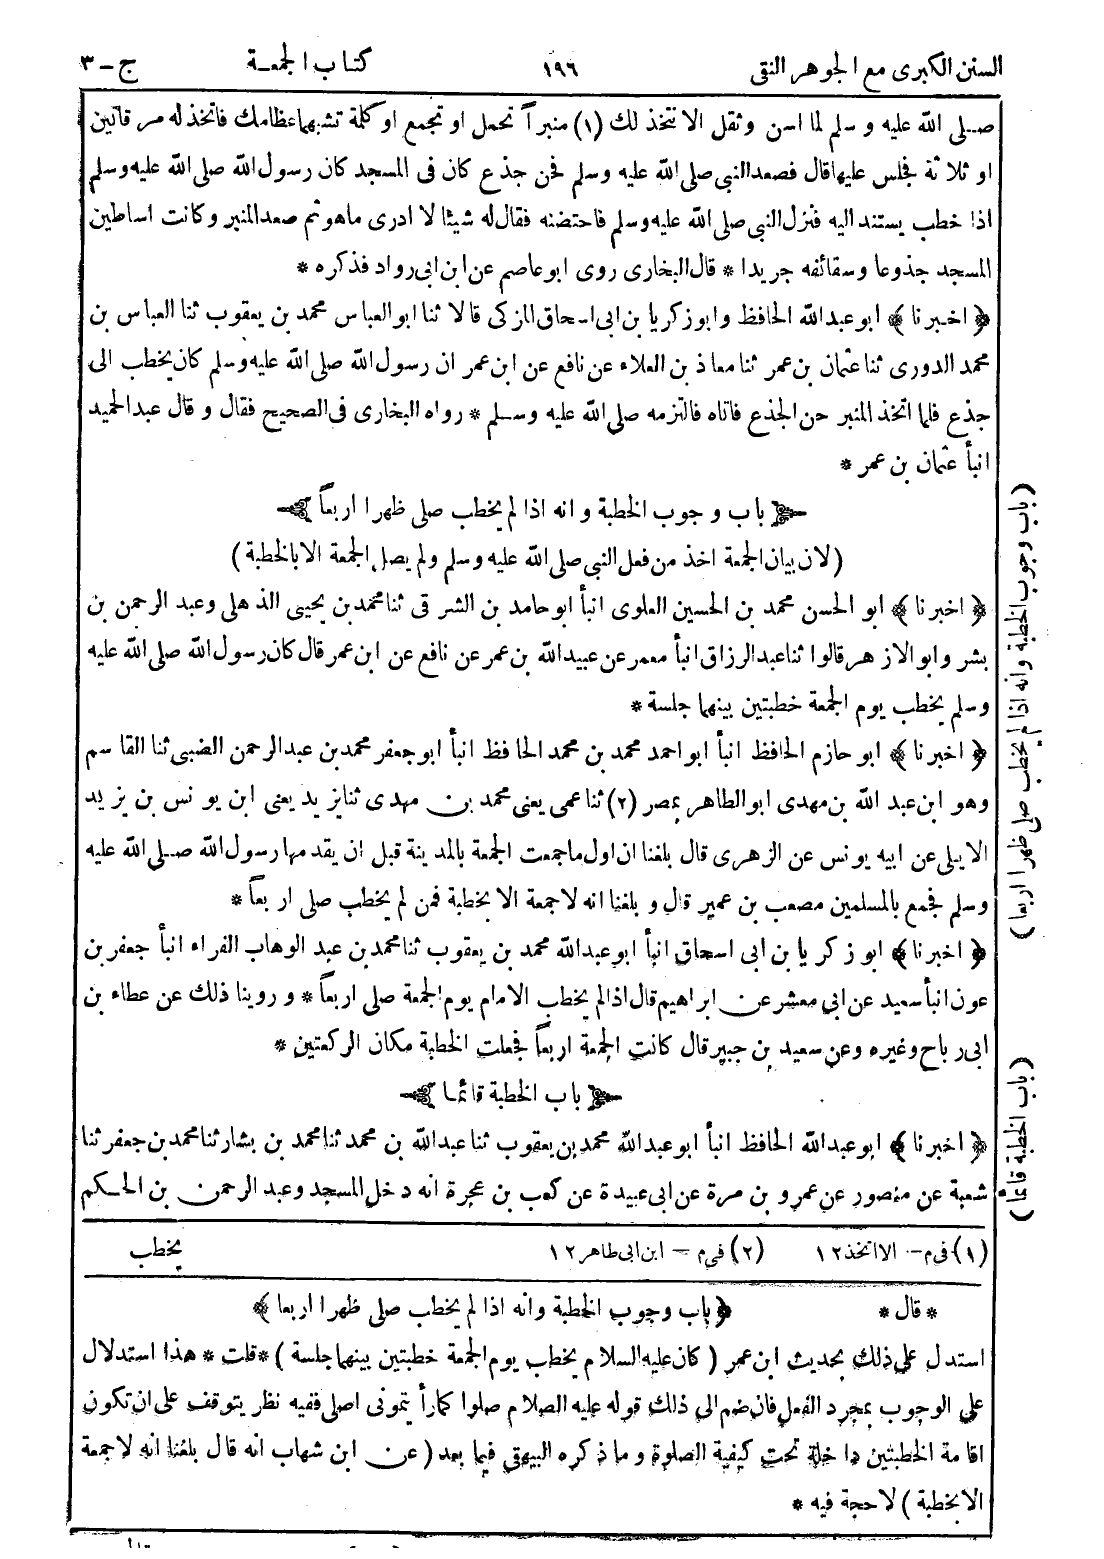 السنن الكبرى مع الجوهر النقى ١٩٦ كتاب الجمعة ج-٣
صلى الله عليه وسلم لما اسن وثقل الا نتخذ لك (١) منبراً تحمل او تجمع او كلمة تشبهها عظامك فاتخذ له مرقاتين
او ثلاثة فجلس عليها قال فصعد النبي صلى الله عليه وسلم فحن جذع كان فى المسجد كان رسول الله صلى الله عليه وسلم
اذا خطب يستند اليه فنزل النبي صلى الله عليه وسلم فاحتضنه فقال له شيئا لا ادرى ماهو ثم صعد المنبر وكانت اساطين
المسجد جذوعا وسقائفه جريدا * قال البخارى روى ابو عاصم عن ابن ابى رواد فذكره *
﴿ اخبرنا ﴾ ابو عبد الله الحافظ وابو زكريا بن ابى اسحاق المزكى قالا ثنا ابو العباس محمد بن يعقوب ثنا العباس بن
محمد الدورى ثنا عثمان بن عمر ثنا معاذ بن العلاء عن نافع عن ابن عمر ان رسول الله صلى الله عليه وسلم كان يخطب الى
جذع فلما اتخذ المنبر حن الجذع فاتاه فالتزمه صلى الله عليه وسلم * رواه البخارى فى الصحيح فقال وقال عبد الحميد
انبأ عثمان بن عمر *
باب وجوب الخطبة وانه اذا لم يخطب صلى ظهرا اربعاً
(لان بيان الجمعة اخذ من فعل النبي صلى الله عليه وسلم ولم يصل الجمعة الا بالخطبة)
﴿ اخبرنا ﴾ ابو الحسن محمد بن الحسين العلوى انبأ ابو حامد بن الشرقى ثنا محمد بن يحيى الذهلى وعبد الرحمن بن
بشر وابو الازهر قالوا ثنا عبد الرزاق انبأ معمر عن عبيد الله بن عمر عن نافع عن ابن عمر قال كان رسول الله صلى الله عليه
وسلم يخطب يوم الجمعة خطبتين بينهما جلسة *
﴿ اخبرنا ﴾ ابو حازم الحافظ انبأ ابو احمد محمد بن محمد الحافظ انبأ ابو جعفر محمد بن عبد الرحمن الضبى ثنا القاسم
وهو ابن عبد الله بن مهدى ابو الطاهر بمصر (٢) ثنا عمى يعنى محمد بن مهدى ثنا يزيد يعنى ابن يونس بن يزيد
الايلى عن ابيه يونس عن الزهرى قال بلغنا ان اول ما جمعت الجمعة بالمدينة قبل ان يقدمها رسول الله صلى الله عليه
وسلم فجمع بالمسلمين مصعب بن عمير قال وبلغنا انه لا جمعة الا بخطبة فمن لم يخطب صلى اربعاً *
﴿ اخبرنا ﴾ ابو زكريا بن ابى اسحاق انبأ ابو عبد الله محمد بن يعقوب ثنا محمد بن عبد الوهاب الفراء انبأ جعفر بن
عون انبأ سعيد عن ابى معشر عن ابراهيم قال اذا لم يخطب الامام يوم الجمعة صلى اربعاً * وروينا ذلك عن عطاء بن
ابى رباح وغيره وعن سعيد بن جبير قال كانت الجمعة اربعاً فجعلت الخطبة مكان الركعتين *
باب الخطبة قائما
﴿ اخبرنا ﴾ ابو عبد الله الحافظ انبأ ابو عبد الله محمد بن يعقوب ثنا عبد الله بن محمد ثنا محمد بن بشار ثنا محمد بن جعفر ثنا
شعبة عن منصور عن عمرو بن مرة عن ابى عبيدة عن كعب بن عجرة انه دخل المسجد وعبد الرحمن بن الحكم
(١) فى م - الا اتخذ ١٢ (٢) فى م - ابن ابى طاهر ١٢ يخطب
* قال * ﴿ باب وجوب الخطبة وانه اذا لم يخطب صلى ظهرا اربعا ﴾
استدل على ذلك بحديث ابن عمر (كان عليه السلام يخطب يوم الجمعة خطبتين بينهما جلسة) * قلت * هذا استدلال
على الوجوب بمجرد الفعل فان ضم الى ذلك قوله عليه الصلام صلوا كما رأيتمونى اصلى ففيه نظر يتوقف على ان تكون
اقامة الخطبتين داخلة تحت كيفية الصلوة وما ذكره البيهقى فيما بعد (عن ابن شهاب انه قال بلغنا انه لا جمعة
الا بخطبة) لا حجة فيه *
(باب وجوب الخطبة وانه اذا لم يخطب صلى ظهرا اربعا)
(باب الخطبة قائماً)